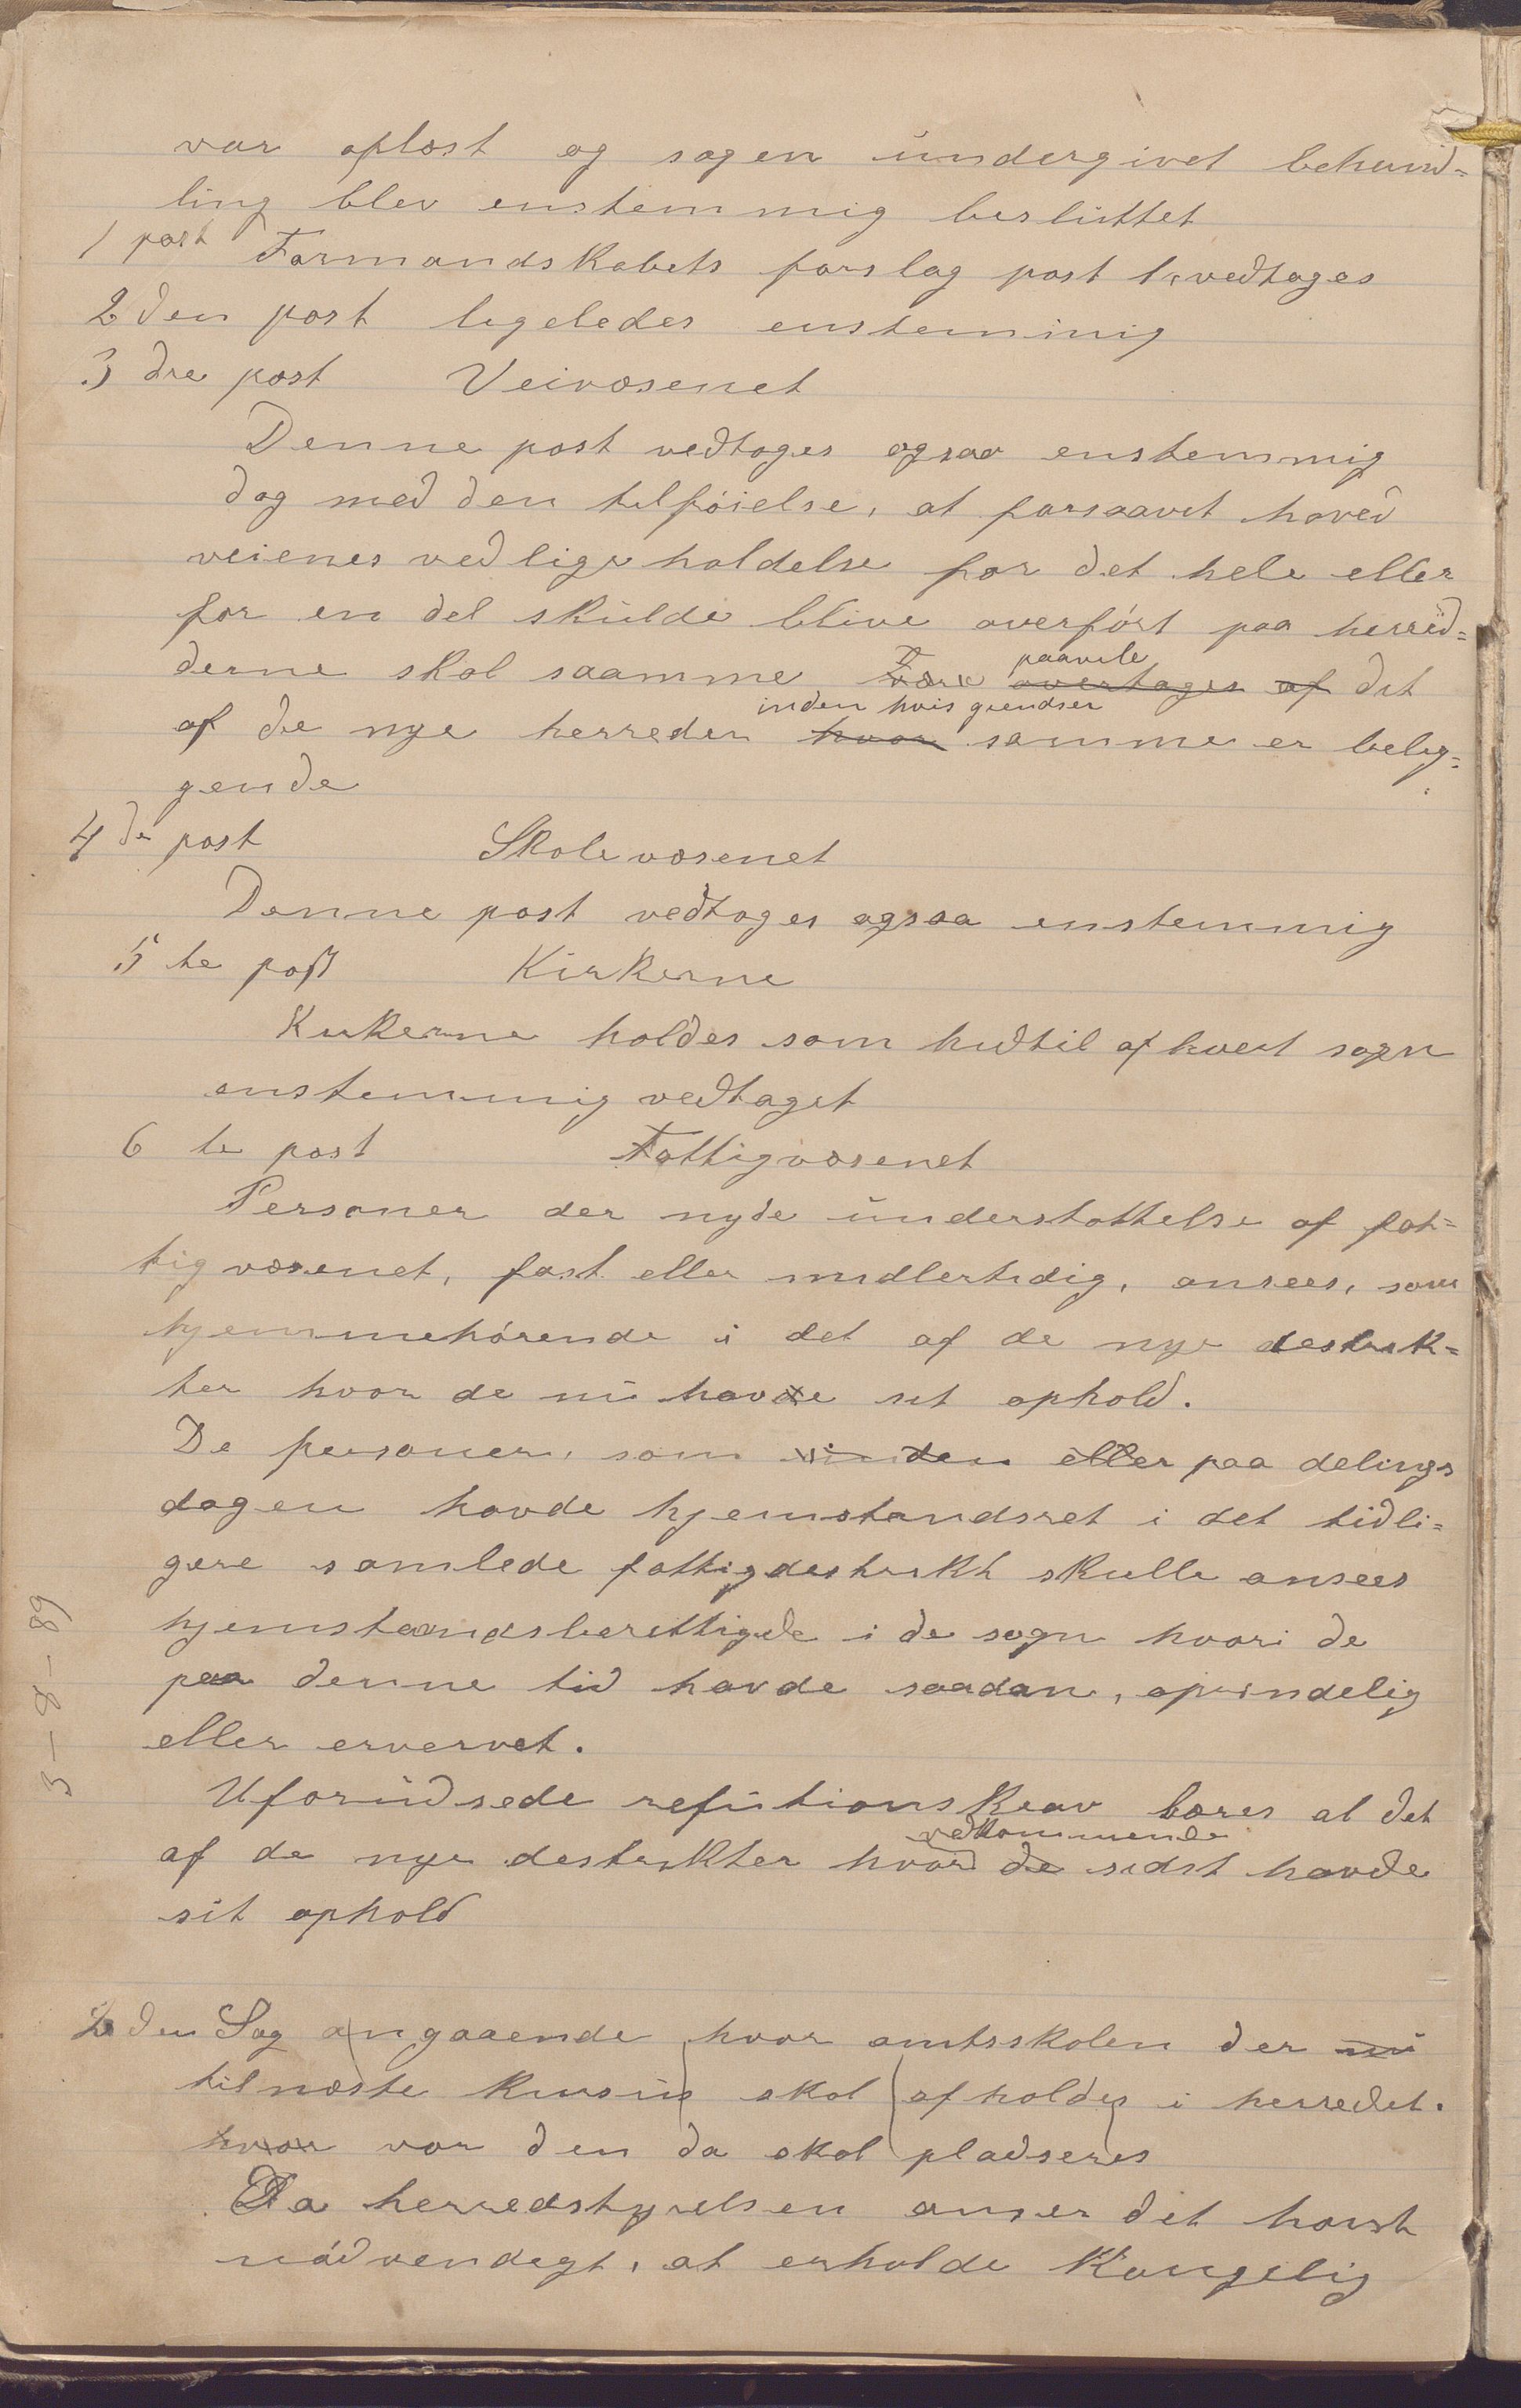 var oplæst og sagen undergivet behand=
ling blev enstemmig besluttet
1 post Formandskabets forslag post 1, vedtages
2den post ligeledes enstemmig
3dre post Veivæsenet
Denne post vedtages ogsaa enstemmig
dog med den tilføielse, at forsaavet hoved
veienes vedligeholdelse for det hele eller
for en del skulde blive overført paa herred=
derne skal saamme paavile overtages af det
af de nye herreder inden hvis grendser hvor samme er belig=
gende
4de post Skolevæsenet
Denne post vedtages ogsaa enstemmig
5te post Kirkerne
Kirkerne holdes som hidtil af hvert sogn
enstemmig vedtaget
6te post Fattigvæsenet
Personer der nyde understøttelse af fat=
tigvæsenet, fast eller midlertidig, ansees, som
hjemmehørende i det af de nye destrik=
ter hvor de nu havde sit ophold.
De personer, som inden eller paa delings
dagen havde hjemstandsret i det tidli=
gere samlede fattigdestrikt skulle ansees
hjemstaandsberettigede i de sogn hvori de
paa denne tid havde saadan, oprindelig
eller ervervet.
Uforudsede refutionskrav bæres al det
af de nye destrikter hvor vedkommende de sidst havde
sit ophold
3-8-89
2den Sag angaaende hvor amtsskolen der nu
til næste kursus skal afholdes i herredet.
hvor vor den da skal pladseres
Da herredstyrelsen anser det høist
nødvendigt, at erholde Kongelig